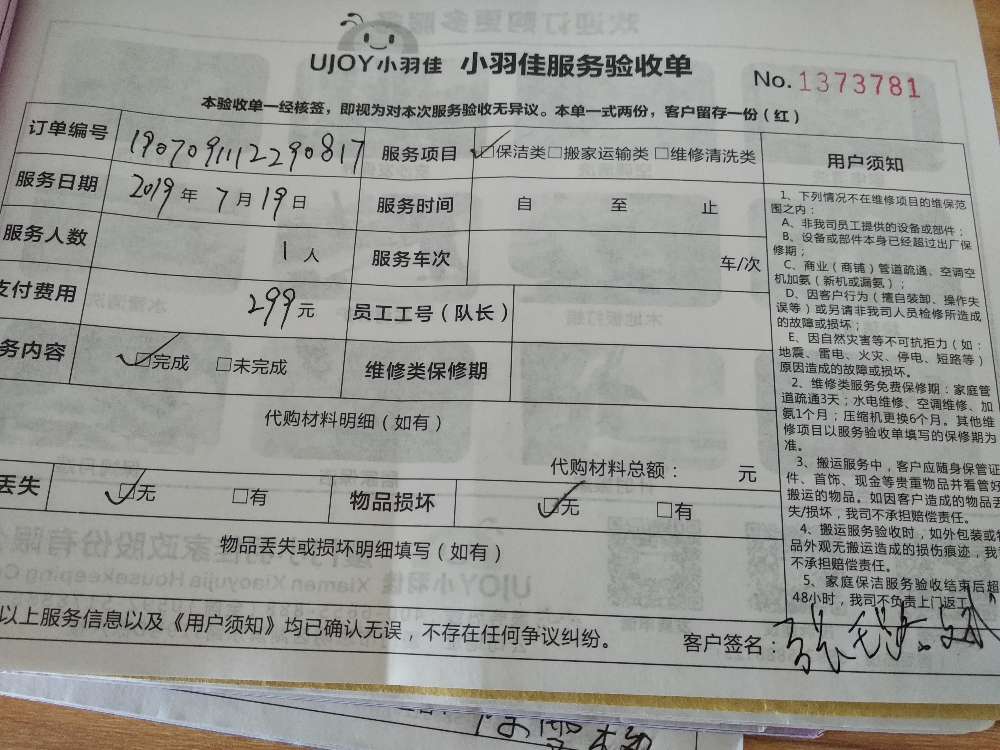 UJOY小羽佳 小羽佳服务验收单
No. 1373781
本验收单一经核签，即视为对本次服务验收无异议。本单一式两份，客户留存一份（红）
订单编号 1907091112290817 服务项目 ☑保洁类 □搬家运输类 □维修清洗类
服务日期 2019年7月19日 服务时间 自 至 止
服务人数 1人 服务车次 车/次
支付费用 299元 员工工号（队长）
务内容 ☑完成 □未完成 维修类保修期
代购材料明细（如有）
代购材料总额： 元
丢失 ☑无 □有 物品损坏 ☑无 □有
物品丢失或损坏明细填写（如有）
以上服务信息以及《用户须知》均已确认无误，不存在任何争议纠纷。 客户签名：
用户须知
1、下列情况不在维修项目的维保范
围之内：
A、非我司员工提供的设备或部件；
B、设备或部件本身已经超过出厂保
修期；
C、商业（商铺）管道疏通、空调空
机加氨（新机或漏氨）；
D、因客户行为（擅自装卸、操作失
误等）或另请非我司人员检修所造成
的故障或损坏；
E、因自然灾害等不可抗拒力（如：
地震、雷电、火灾、停电、短路等）
原因造成的故障或损坏。
2、维修类服务免费保修期：家庭管
道疏通3天；水电维修、空调维修、加
氨1个月；压缩机更换6个月。其他维
修项目以服务验收单填写的保修期为
准。
3、搬运服务中，客户应随身保管证
件、首饰、现金等贵重物品并看管好
搬运的物品。如因客户造成的物品丢
失/损坏，我司不承担赔偿责任。
4、搬运服务验收时，如外包装或物
品外观无搬运造成的损伤痕迹，我司
不承担赔偿责任。
5、家庭保洁服务验收结束后超
48小时，我司不负责上门返工